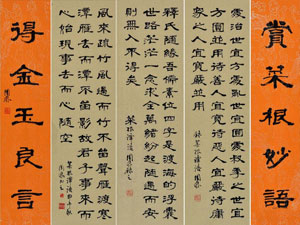 賞菜根妙語
處治世宜方處亂世宜圓處叔季之世宜
方圓並用待善人宜寬待惡人宜嚴待庸
眾之人宜寬嚴並用
釋氏隨緣吾儒素位四字是渡海的浮囊
世路茫茫一念求全萬緒紛起隨寓而安
則無入不得矣
菜根譚語
風來疏竹風過而竹不留聲雁渡寒
潭雁去而潭不留影故君子事來而
心始現事去而心隨空
得金玉良言